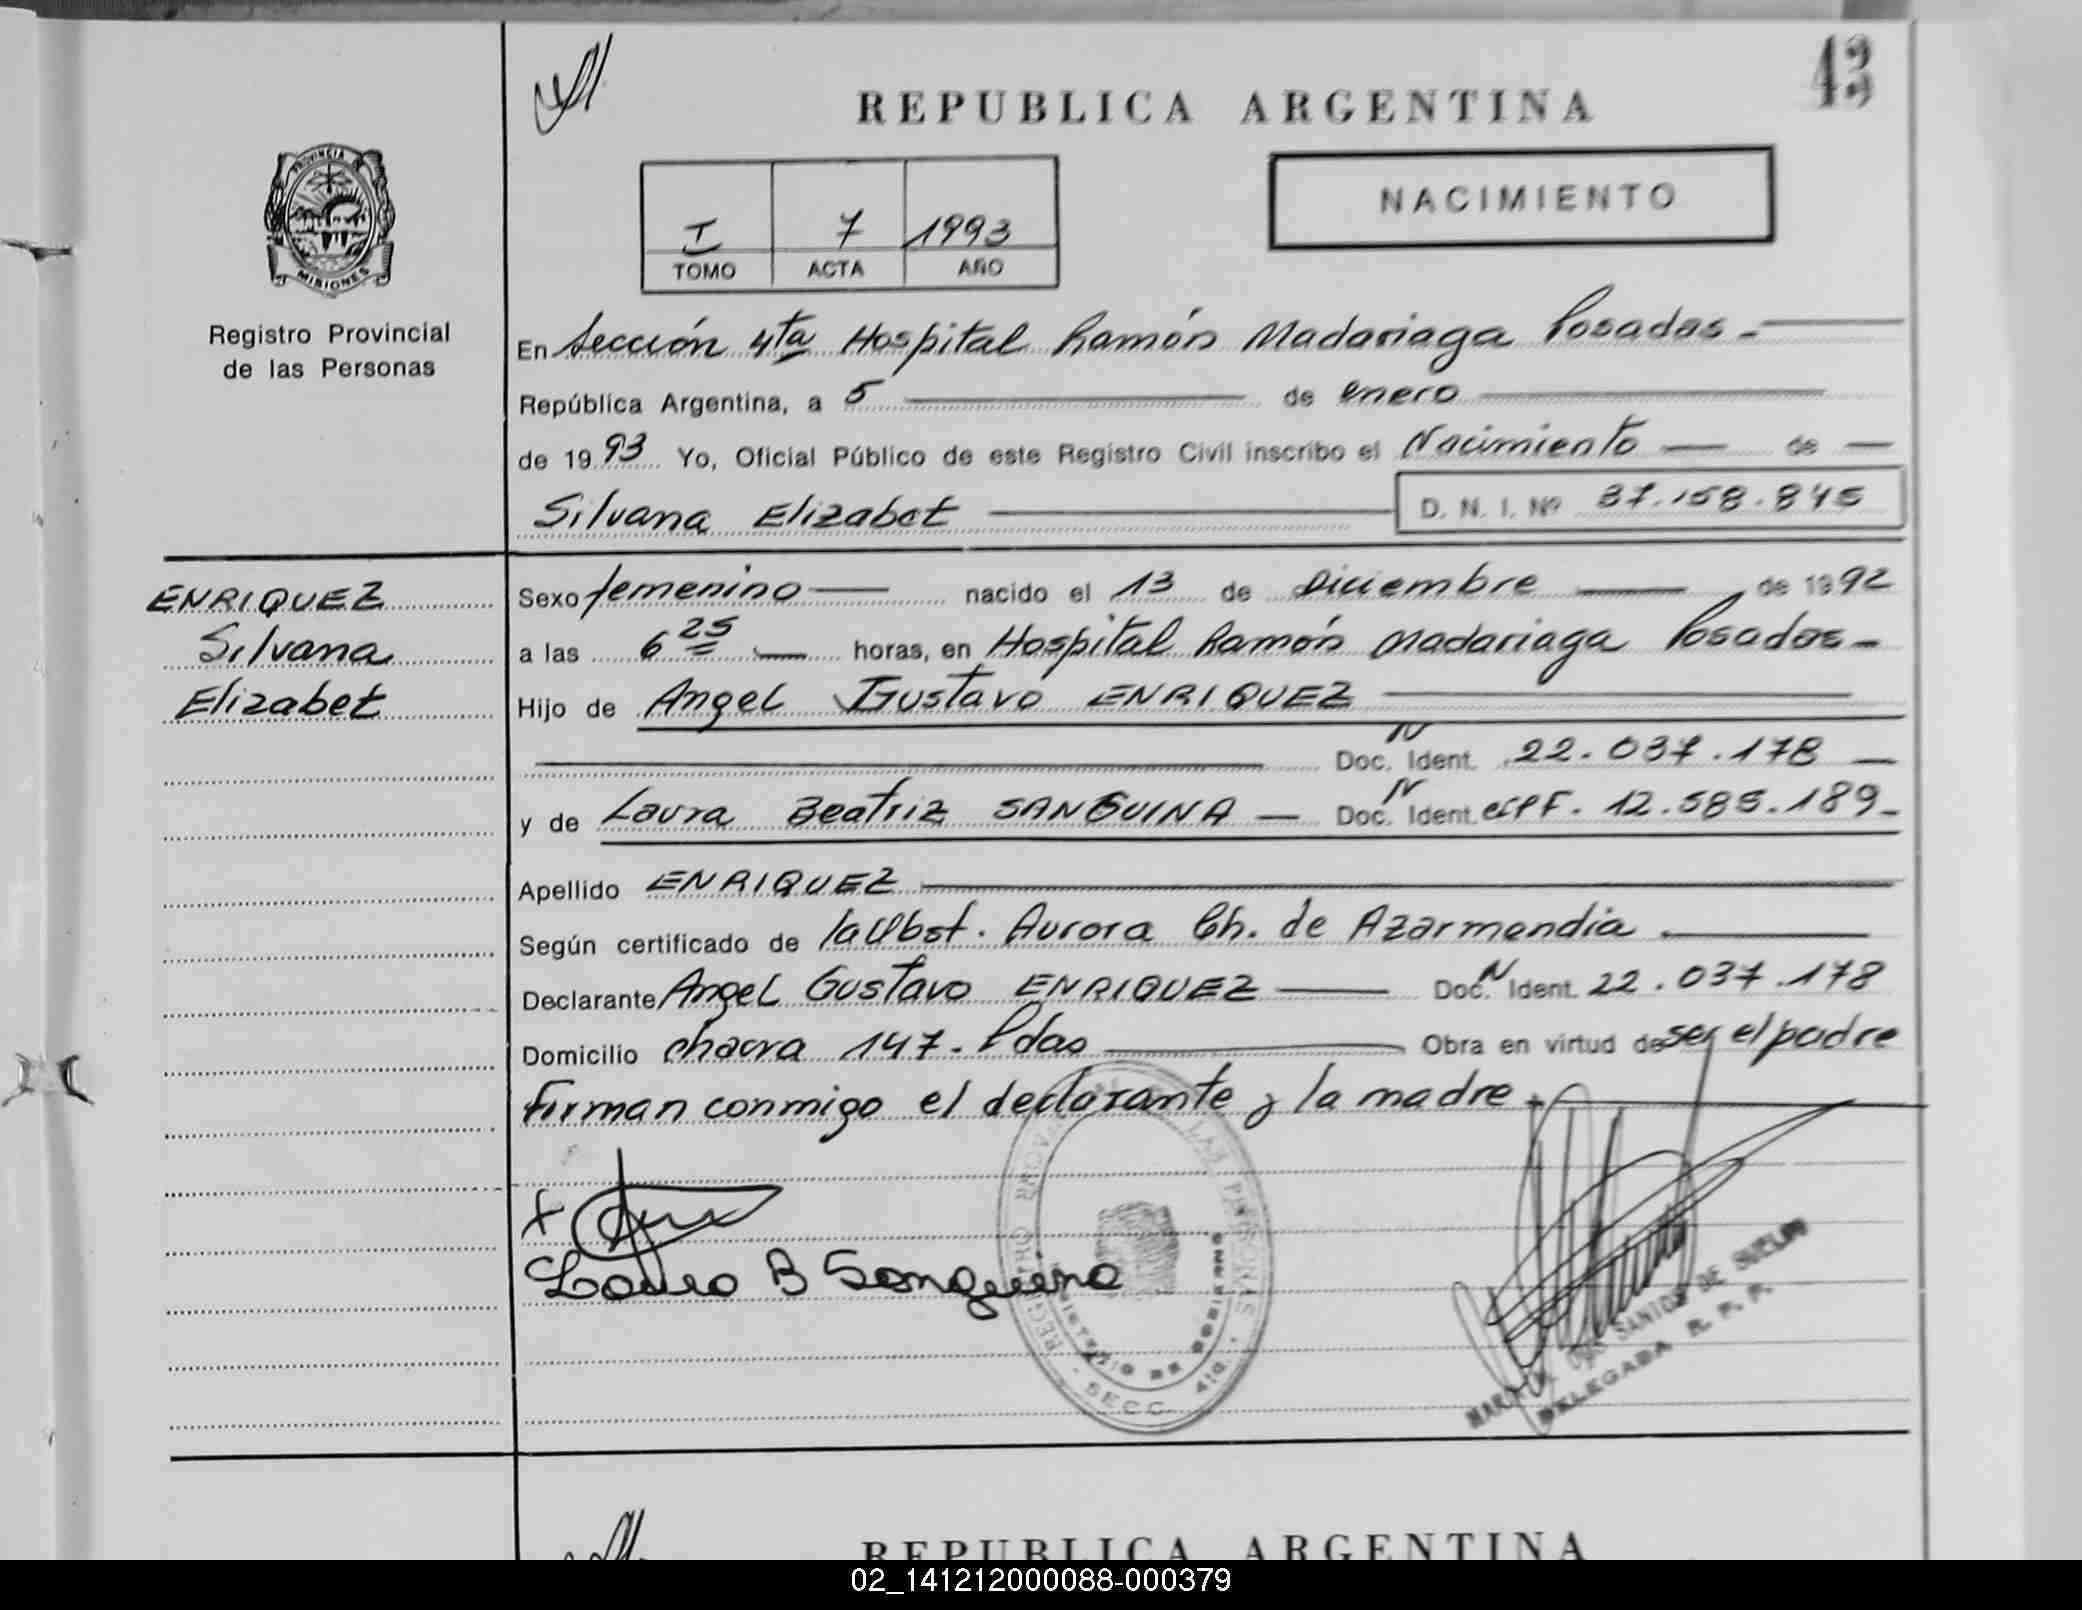 43
REPUBLICA ARGENTINA
NACIMIENTO
I 7 1993
TOMO ACTA AÑO
PROVINCIA DE
MISIONES
Registro Provincial
de las Personas
En Sección 4ta Hospital Ramón Madariaga Posadas-
República Argentina, a 5 de enero
de 1993 Yo, Oficial Público de este Registro Civil inscribo el Nacimiento de
Silvana Elizabet D. N. I. Nº 37.158.845
ENRIQUEZ
Silvana
Elizabet
Sexo femenino nacido el 13 de Diciembre de 1992
a las 6 25 horas, en Hospital Ramón Madariaga Posadas-
Hijo de Angel Gustavo ENRIQUEZ
Doc. N Ident. 22.037.178
y de Laura Beatriz SANGUINA Doc. N Ident. 12.585.189-
Apellido ENRIQUEZ
Según certificado de la Obst. Aurora Ch. de Azarmendia
Declarante Angel Gustavo ENRIQUEZ Doc. N Ident. 22.037.178
Domicilio chacra 147- Pdas Obra en virtud de ser el padre
Firman conmigo el declarante y la madre
Laura B Sanguina
REGISTRO PROVINCIAL DE LAS PERSONAS
SECC. 4ta
SANTOS DE
DELEGADA R. P. P.
REPUBLICA ARGENTINA
02_141212000088-000379